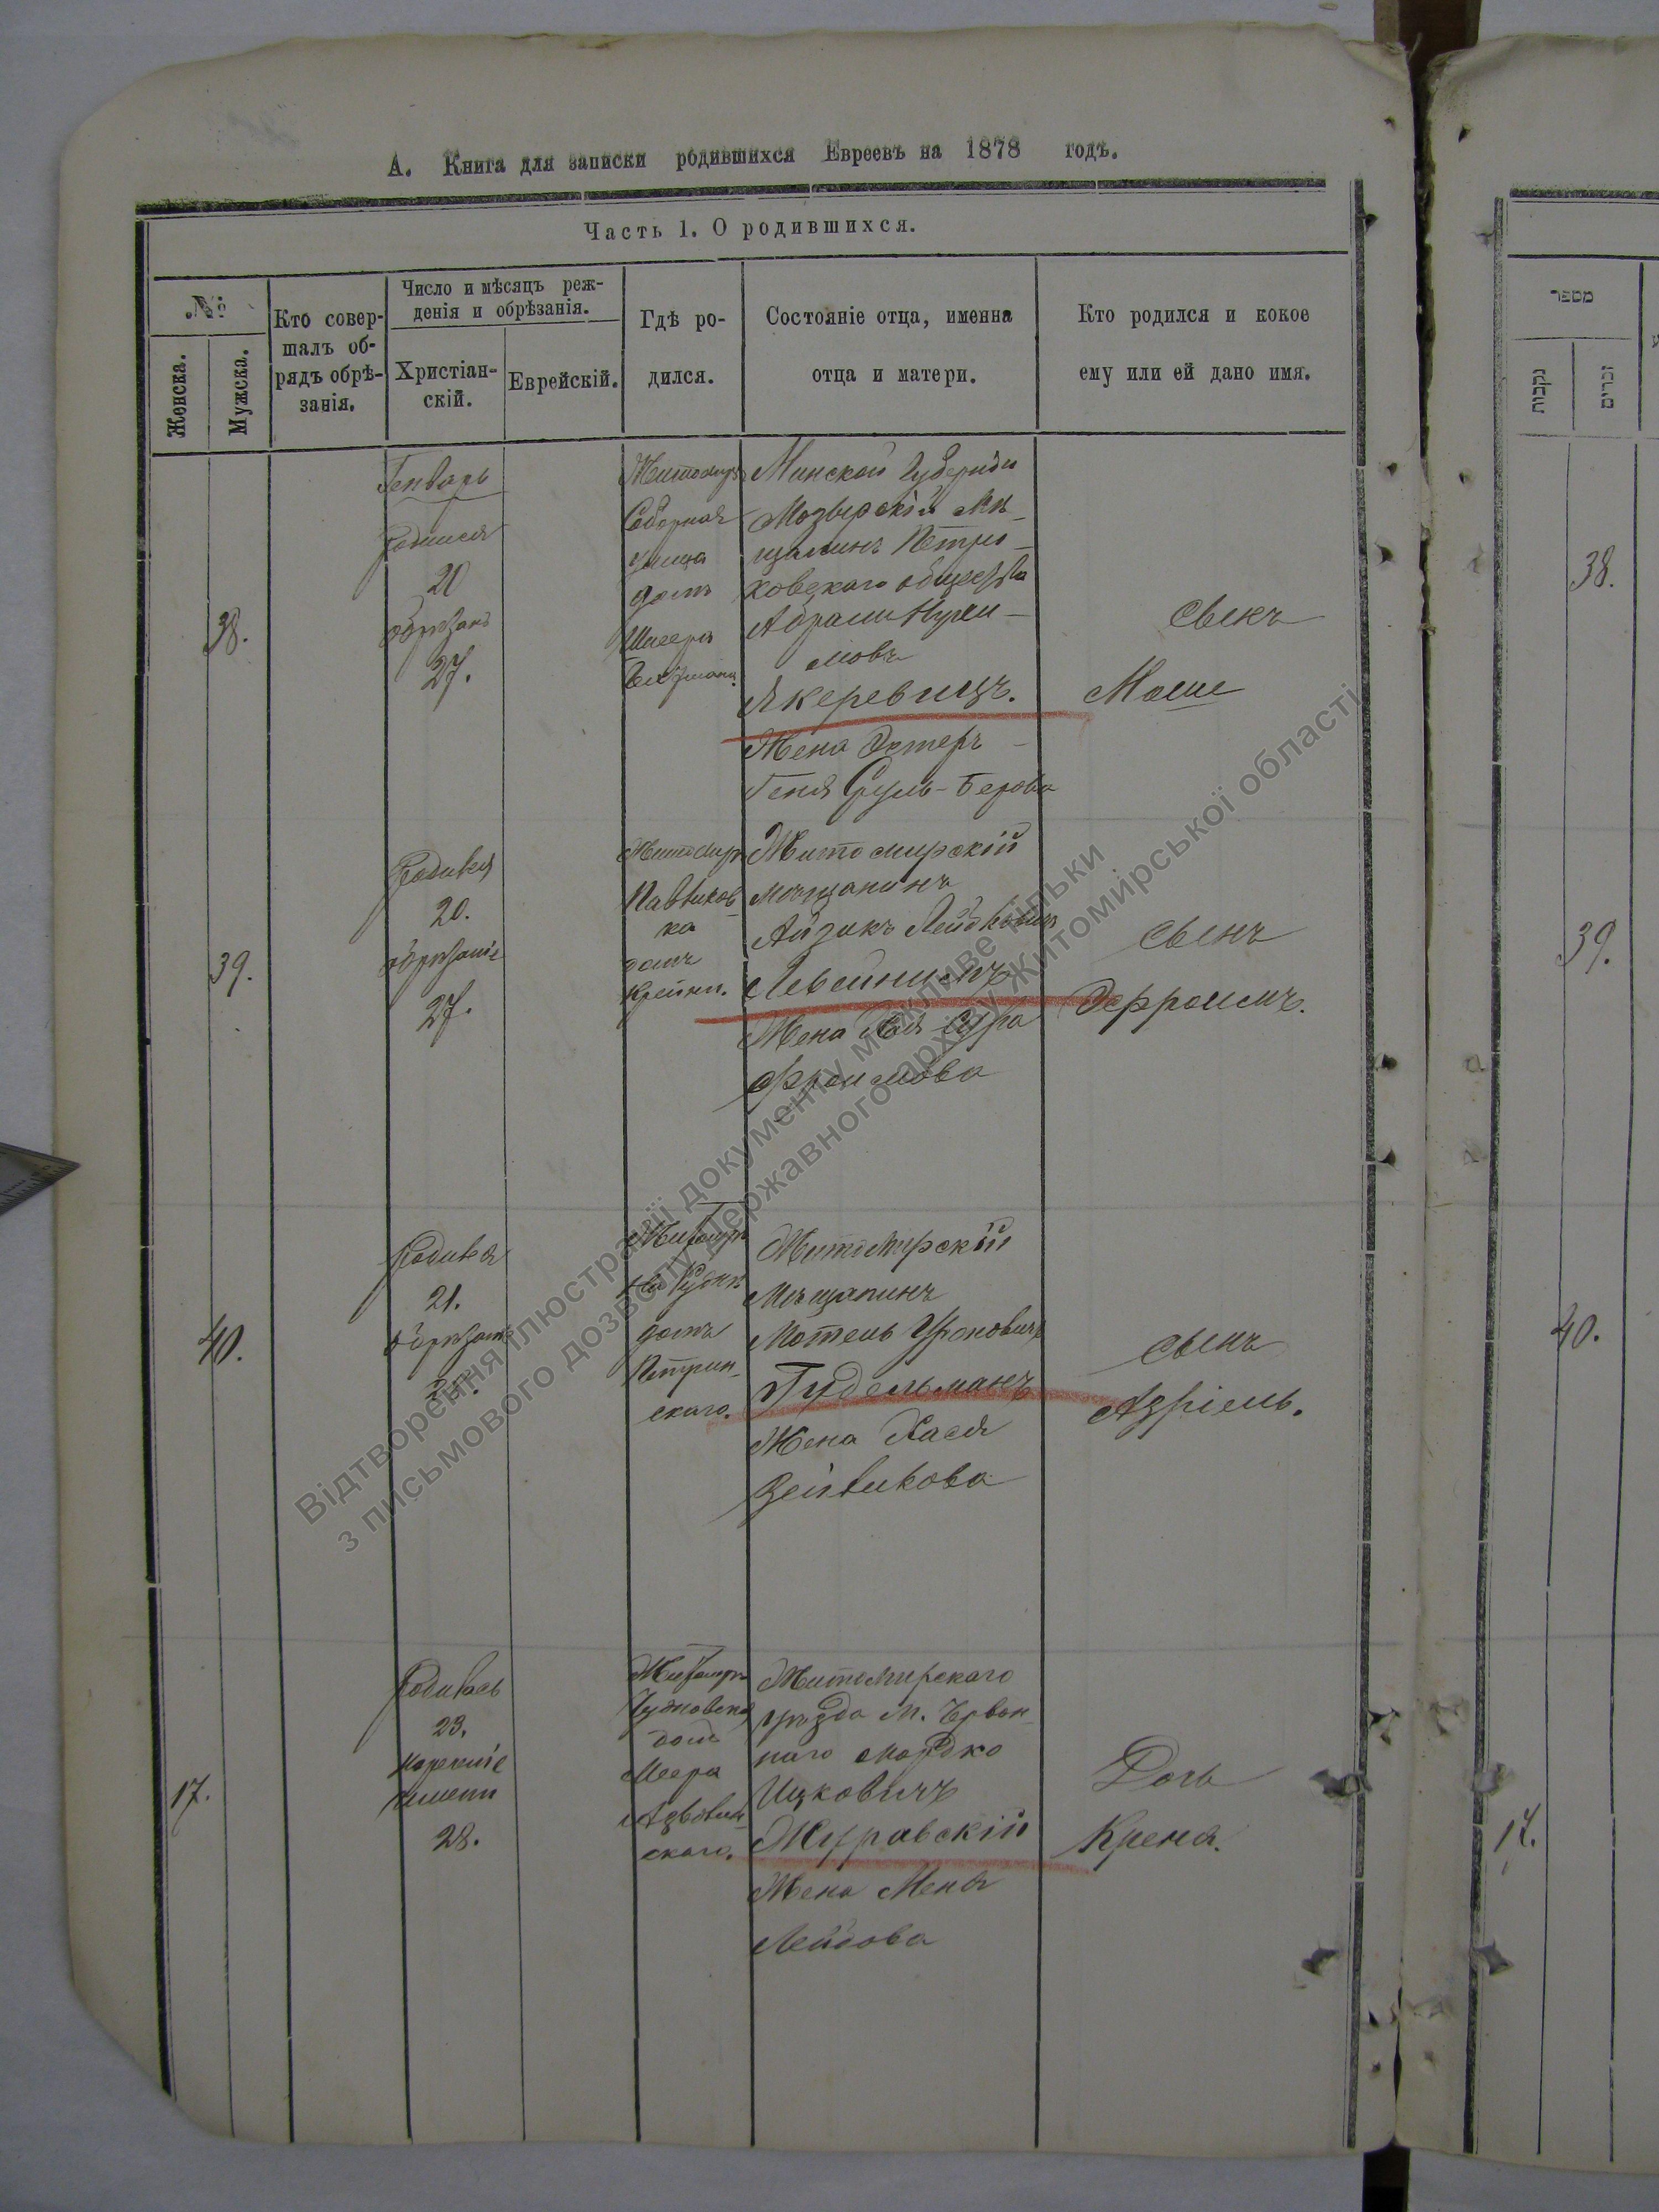 А. Книга для записки родившихся Евреевъ на 1878 годъ.
Часть 1. О родившихся.
№
Женска.
Мужска.
Кто совер-
шалъ об-
рядъ обрѣ-
занія.
Число и мѣсяцъ реж-
денія и обрѣзанія.
Христіан-
скій.
Еврейскій.
Гдѣ ро-
дился.
Состояніе отца, именна
отца и матери.
Кто родился и кокое
ему или ей дано имя.
38.
Генварь
родился
20
обрѣзанъ
27.
Житомиръ
Соборная
улица
домъ
Минской Губерніи
Мозырскій Мѣ-
щанинъ Петри-
ковскаго общества
Абрамъ
мовъ
Якеревичъ.
Жена Эстеръ-
Геня Сруль-Берова
Сынъ
Моше
39.
Родился
20.
обрѣзаніе
27.
Житомиръ
Павликов-
ка
домъ
Житомирскій
мѣщанинъ
Айзикъ Лейбовичъ
Жена Хая Сура
Фроимова
сынъ
Эфроимъ.
40.
Родился
21.
Житомиръ
домъ
скаго.
Житомирскій
Мѣщанинъ
Мотель
Гудельманъ
Жена Хася
Зейликова
сынъ
Азріель.
17.
Родилась
23.
нареченіе
имени
28.
Житомиръ
Чудновская
домъ
Меера
скаго.
Житомирскаго
уѣзда М.
наго Мордко
Ицковичъ
Журавскій
Жена Меня
Лейбова
Дочь
Креня.
מספר
נקבות
זכרים
38.
39.
40.
17.
Відтворення ілюстрації документу можливе тільки
з письмового дозволу Державного архіву Житомирської області